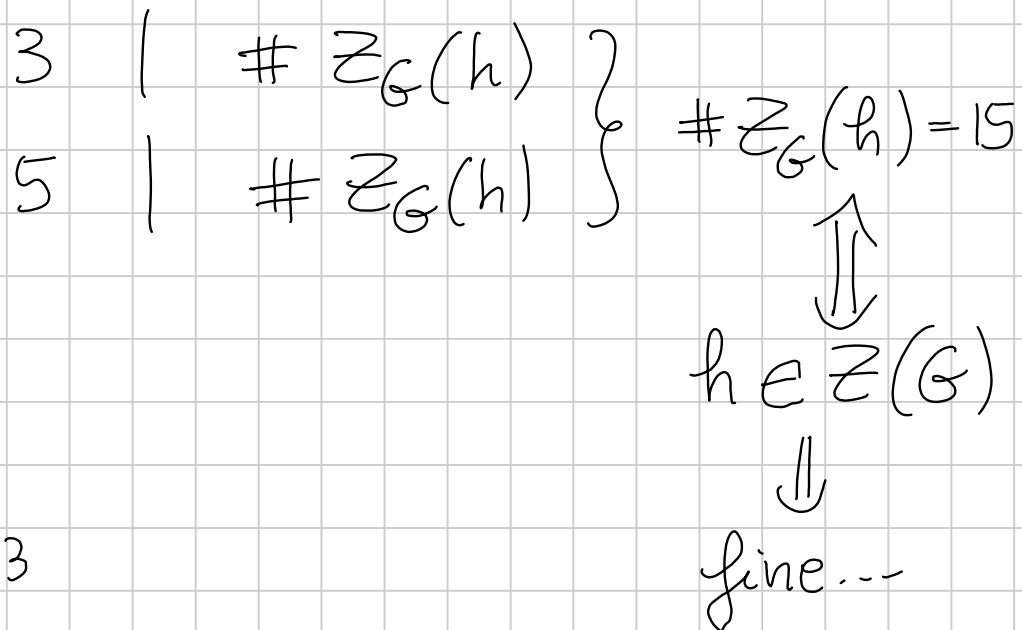 3 | # Z_G(h) }
5 | # Z_G(h) } # Z_G(h) = 15
⇕
h ∈ Z(G)
⇓
3
fine...